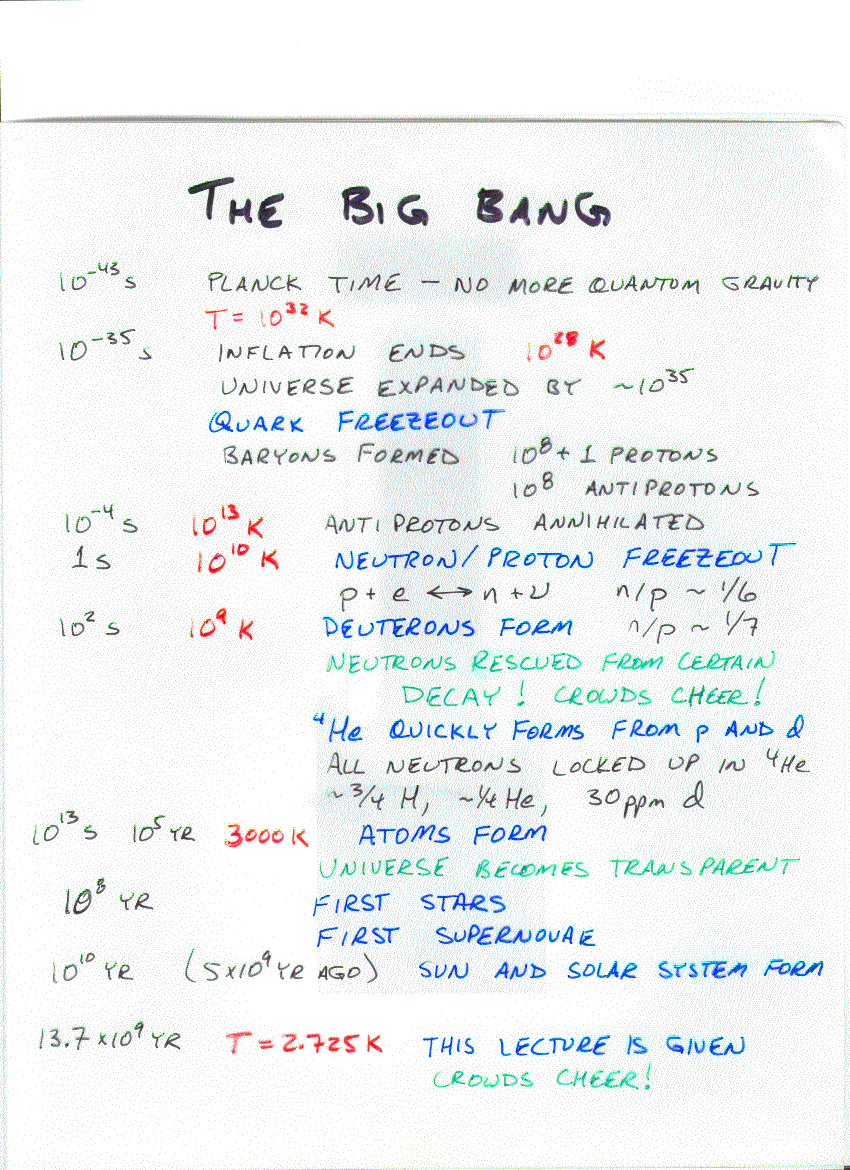 THE BIG BANG
10⁻⁴³ s PLANCK TIME – NO MORE QUANTUM GRAVITY
T = 10³² K
10⁻³⁵ s INFLATION ENDS 10²⁸ K
UNIVERSE EXPANDED BY ~10³⁵
QUARK FREEZEOUT
BARYONS FORMED 10⁸ + 1 PROTONS
10⁸ ANTIPROTONS
10⁻⁴ s 10¹³ K ANTIPROTONS ANNIHILATED
1 s 10¹⁰ K NEUTRON/PROTON FREEZEOUT
p + e ↔ n + ν n/p ~ 1/6
10² s 10⁹ K DEUTERONS FORM n/p ~ 1/7
NEUTRONS RESCUED FROM CERTAIN
DECAY! CROWDS CHEER!
⁴He QUICKLY FORMS FROM p AND d
ALL NEUTRONS LOCKED UP IN ⁴He
~3/4 H, ~1/4 He, 30 ppm d
10¹³ s 10⁵ YR 3000 K ATOMS FORM
UNIVERSE BECOMES TRANSPARENT
10⁸ YR FIRST STARS
FIRST SUPERNOVAE
10¹⁰ YR (5×10⁹ YR AGO) SUN AND SOLAR SYSTEM FORM
13.7×10⁹ YR T = 2.725 K THIS LECTURE IS GIVEN
CROWDS CHEER!